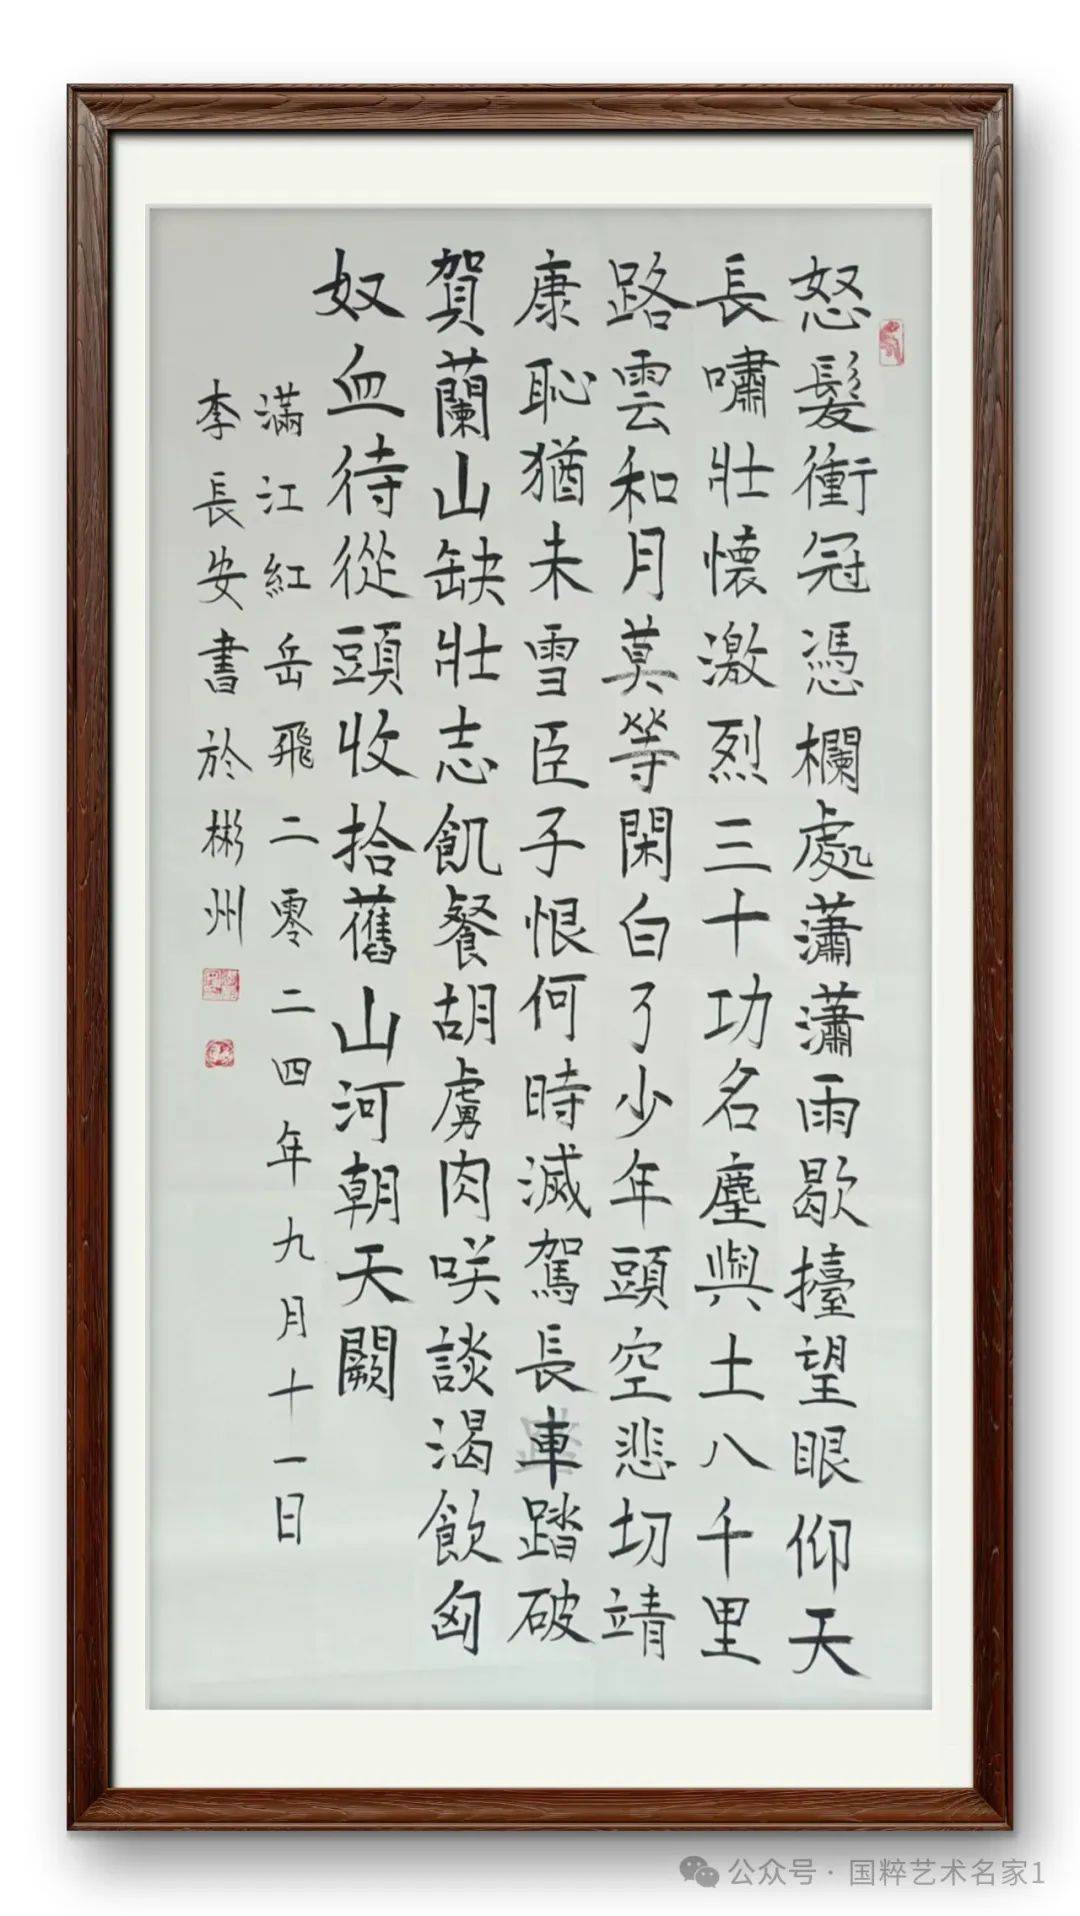 怒髮衝冠憑欄處瀟瀟雨歇擡望眼仰天
長嘯壯懷激烈三十功名塵與土八千里
路雲和月莫等閑白了少年頭空悲切靖
康恥猶未雪臣子恨何時滅駕長車踏破
賀蘭山缺壯志飢餐胡虜肉咲談渴飲匈
奴血待從頭收拾舊山河朝天闕
滿江紅岳飛二零二四年九月十一日
李長安書於彬州
公众号·国粹艺术名家1